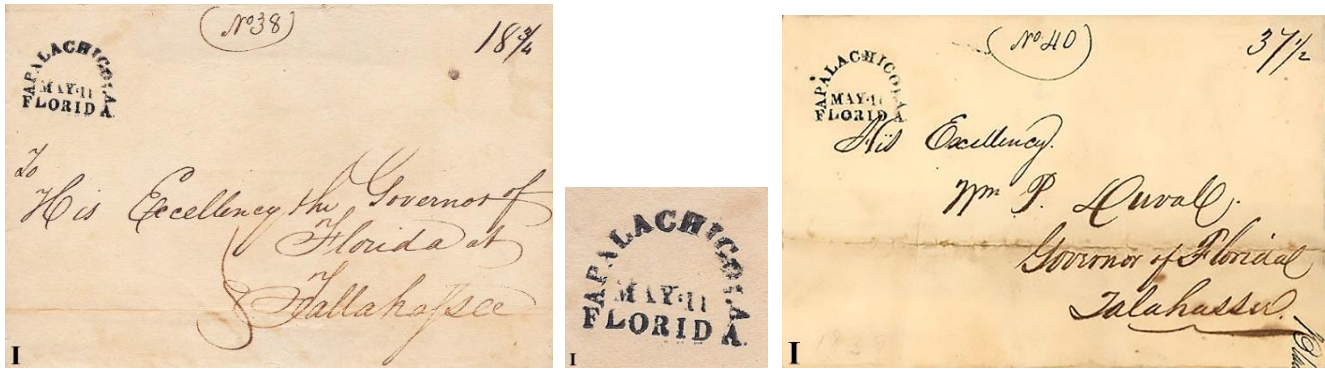 No 38
18 3/4
APALACHICOLA
MAY·11
FLORIDA
To
His Excellency the Governor of
Florida at
Tallahassee
I
APALACHICOLA
MAY·11
FLORIDA
I
No 40
37 1/2
APALACHICOLA
MAY·11
FLORIDA
His Excellency.
Wm P. Duval.
Governor of Florida
Talahassee.
I